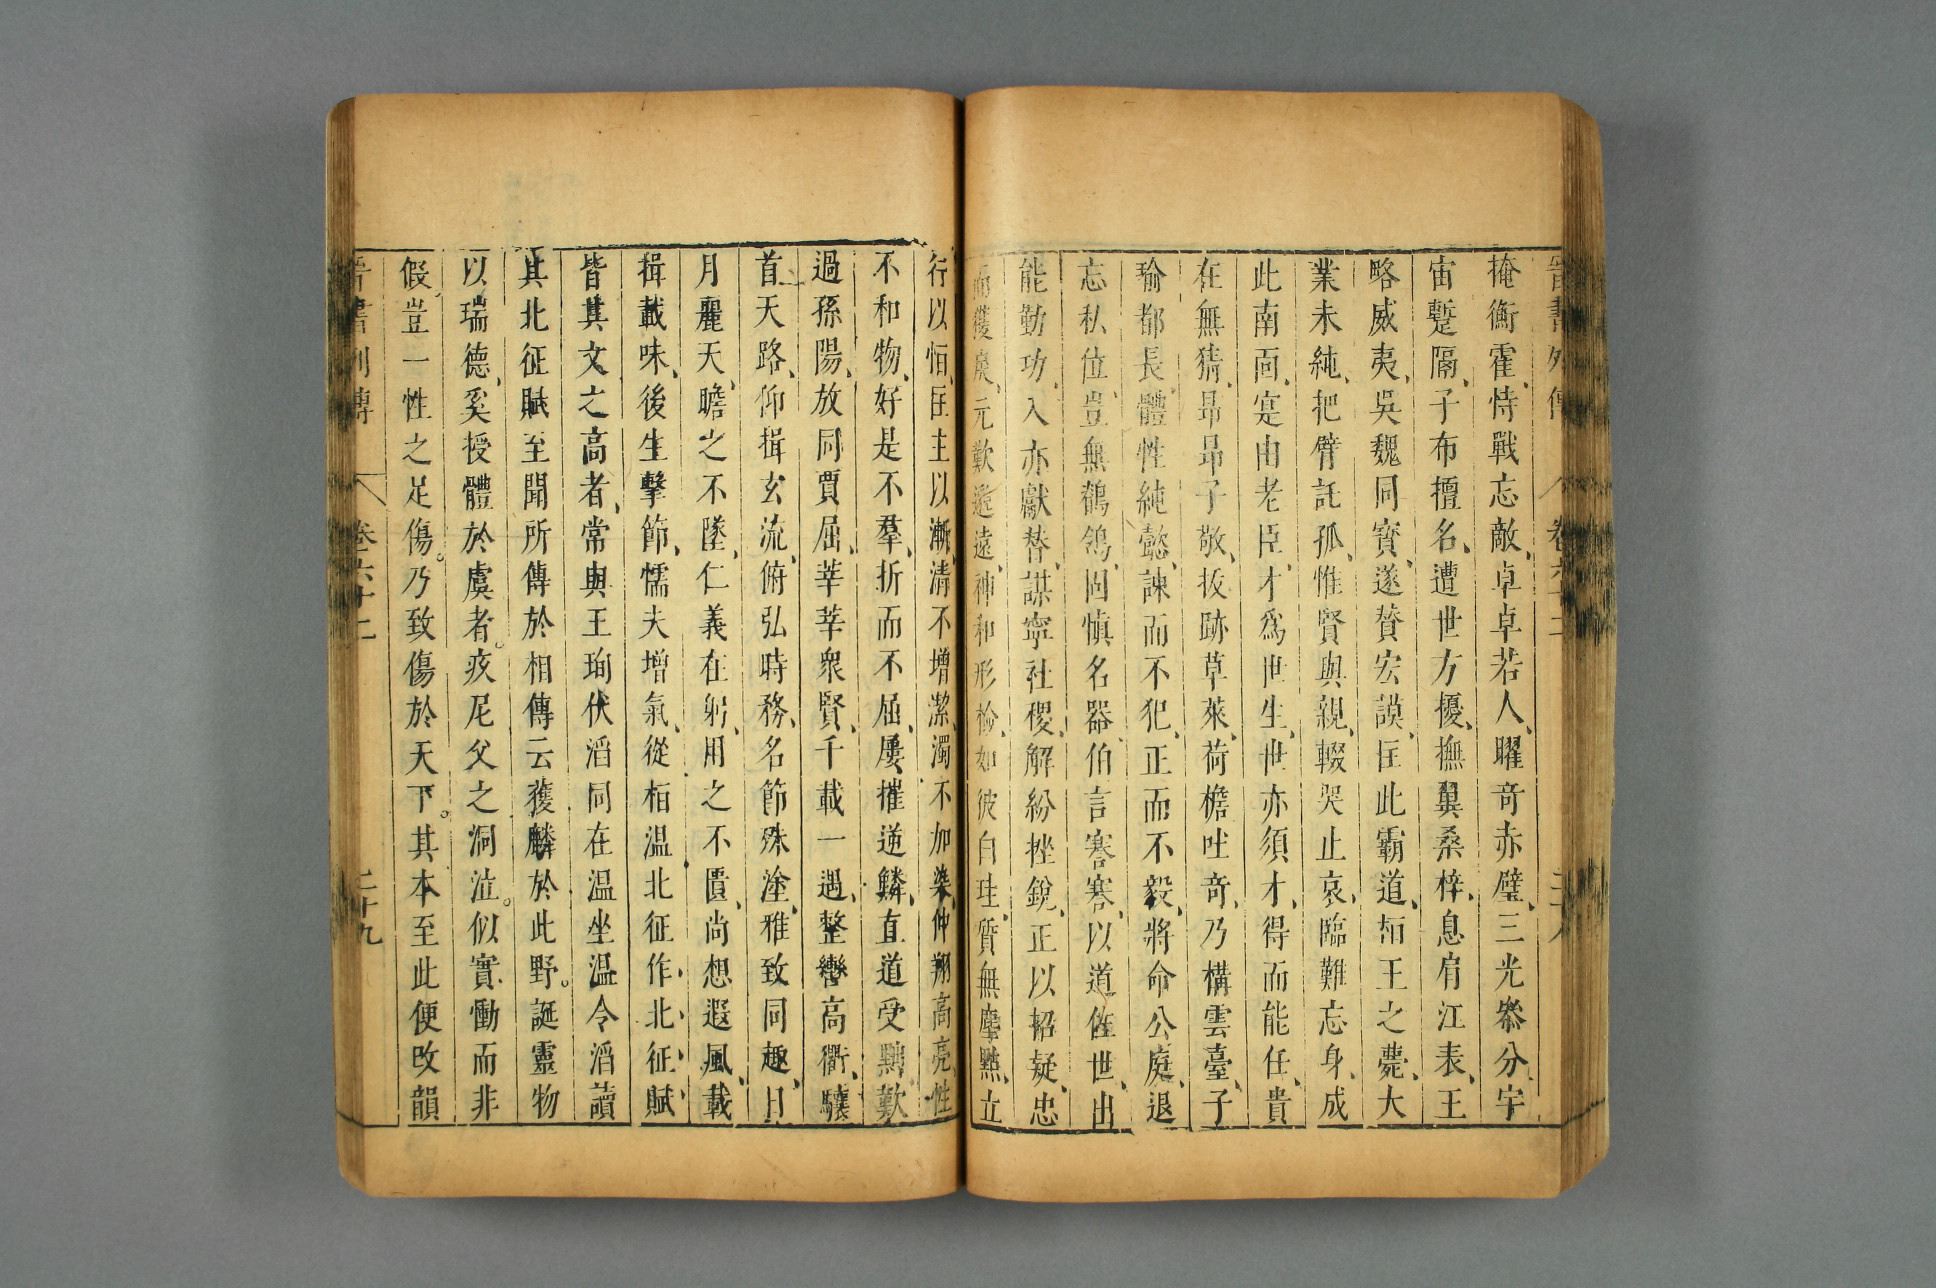 晉書列傳 卷六十二 二十八
掩衡霍恃戰忘敵卓卓若人曜奇赤璧三光叅分宇
宙蹔隔子布擅名遭世方擾撫翼桑梓息肩江表王
略威夷吳魏同寶遂贊宏謨匡此霸道栢王之薨大
業未純把臂託孤惟賢與親輟哭止哀臨難忘身成
此南面寔由老臣才爲世生世亦須才得而能任貴
在無猜昻昻子敬拔跡草萊荷檐吐奇乃構雲臺子
瑜都長體性純懿諫而不犯正而不毅將命公庭退
忘私位豈無鶺鴒固愼名器伯言謇謇以道佐世出
能勤功入亦獻替謀寧社稷解紛挫銳正以招疑忠
而獲戾元歎邈遠神和形檢如彼白珪質無塵點立
行以恒匡主以漸清不增潔濁不加染仲翔高亮性
不和物好是不羣折而不屈屢摧逆鱗直道受黜歎
過孫陽放同賈屈莘莘衆賢千載一遇整轡高衢驤
首天路仰揖玄流俯弘時務名節殊塗雅致同趣日
月麗天瞻之不墜仁義在躬用之不匱尚想遐風載
揖載味後生擊節懦夫增氣從栢溫北征作北征賦
皆其文之高者常與王珣伏滔同在溫坐溫令滔讀
其北征賦至聞所傳於相傳云獲麟於此野。誕靈物
以瑞德奚授體於虞者。疚尼父之洞泣。似實慟而非
假豈一性之足傷。乃致傷於天下。其本至此便改韻
晉書列傳 卷六十二 二十九